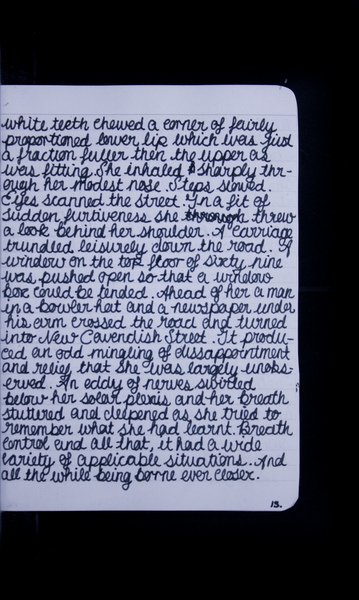 white teeth chewed a corner of fairly
proportioned lower lip which was just
a fraction fuller then the upper as
was fitting. She inhaled sharply thr-
ough her modest nose. Steps slowed.
Eyes scanned the street. In a fit of
sudden furtiveness she through threw
a look behind her shoulder. A carriage
trundled leisurely down the road. A
window on the top floor of sixty nine
was pushed open so that a window
box could be tended. Ahead of her a man
in a bowler hat and a newspaper under
his arm crossed the road and turned
into New Cavendish Street. It produ-
ced an odd mingling of dissappointment
and relief that she was largely unobs-
erved. An eddy of nerves swirled
below her solar plexis and her breath
stuttered and deepened as she tried to
remember what she had learnt. Breath
control and all that, it had a wide
variety of applicable situations.. And
all the while being borne ever closer.
15.